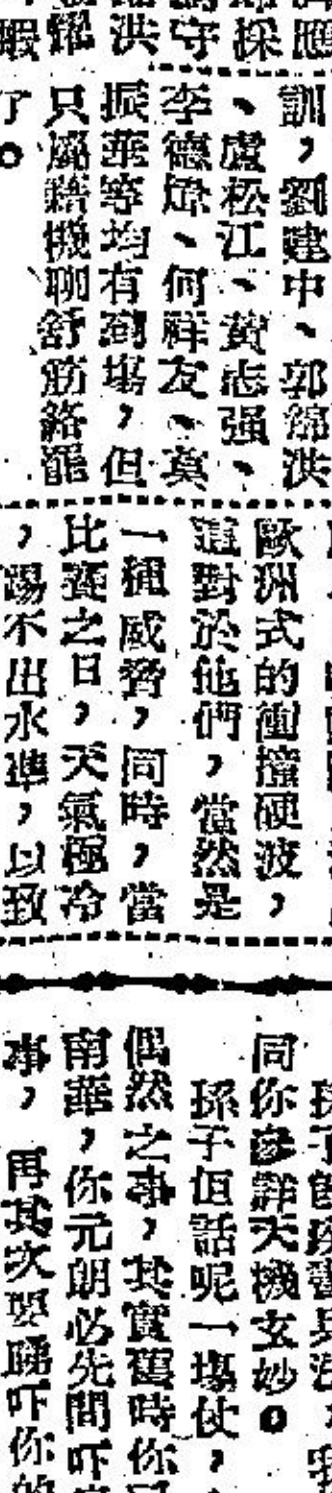 應
採
守
洪
訓，劉建中、郭錦洪
、盧松江、黃志强、
李德焯、何祥友、莫
振華等均有到塲，但
只屬藉機聊舒筋絡罷
了。
歐洲式的衝撞硬波，
這對於他們，當然是
一種威脅，同時，當
比賽之日，天氣極冷
，踢不出水準，以致
同你參詳天機玄妙。
孫子恒話呢一塲仗，
偶然之事，其實舊時你
南華，你元朗必先問吓
事，再其次要睇吓你的